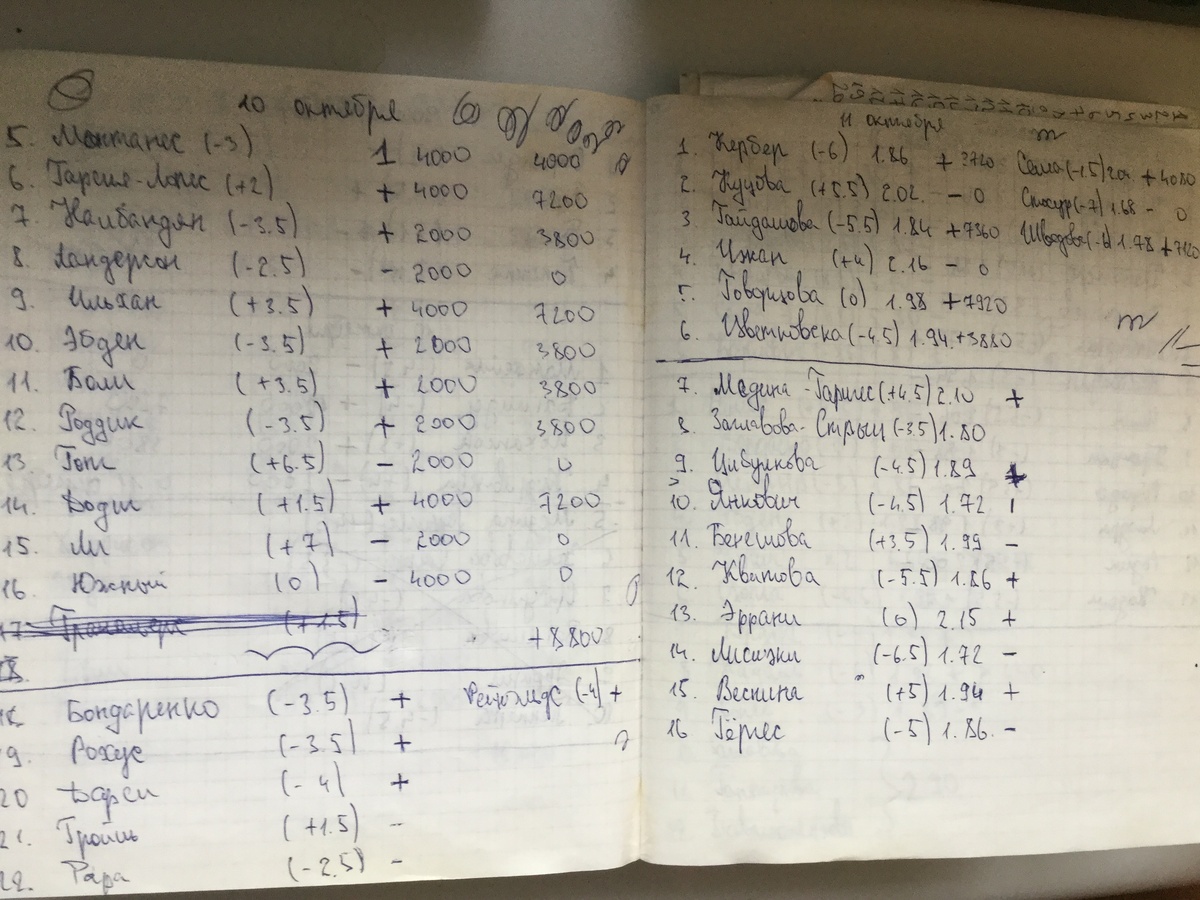 10 октября
5. Монтанес (-3) 1 4000 4000
6. Гарсия-Лопес (+2) + 4000 7200
7. Налбандян (-3.5) + 2000 3800
8. Хандерсон (-2.5) - 2000 0
9. Ильхан (+3.5) + 4000 7200
10. Эбден (-3.5) + 2000 3800
11. Болл (+3.5) + 2000 3800
12. Роддик (-3.5) + 2000 3800
13. (+6.5) - 2000 0
14. Додиг (+1.5) + 4000 7200
15. Ли (+7) - 2000 0
16. Южный (0) - 4000 0
17 (+1.5)
+8800
18
Бондаренко (-3.5) + Рейнолдс (-4) +
9. Рохус (-3.5) +
20 Дарси (-4) +
21. Тройць (+1.5) -
22. Рара (-2.5) -
11 октября
1. Кербер (-6) 1.86 + 3720 (-1.5) 2.04 + 4080
2. Куцова (+5.5) 2.02. - 0 (-7) 1.68 - 0
3. Гайдашова (-5.5) 1.84 + 7360 Шведова 1.78 + 7120
4. Чжан (+4) 2.16 - 0
5. Говорцова (0) 1.98 + 7920
6. Цветковска (-4.5) 1.94. + 3880
7. Медина-Гаригес (+4.5) 2.10 +
8. Заглавова-Стрыц (-3.5) 1.80
9. Цибулкова (-4.5) 1.89 +
10. Янкович (-4.5) 1.72 1
11. Бенешова (+3.5) 1.99 -
12. Квитова (-5.5) 1.86 +
13. Эррани (0) 2.15 +
14. Лисички (-6.5) 1.72 -
15. Веснина (+5) 1.94 +
16 Гёргес (-5) 1.86. -